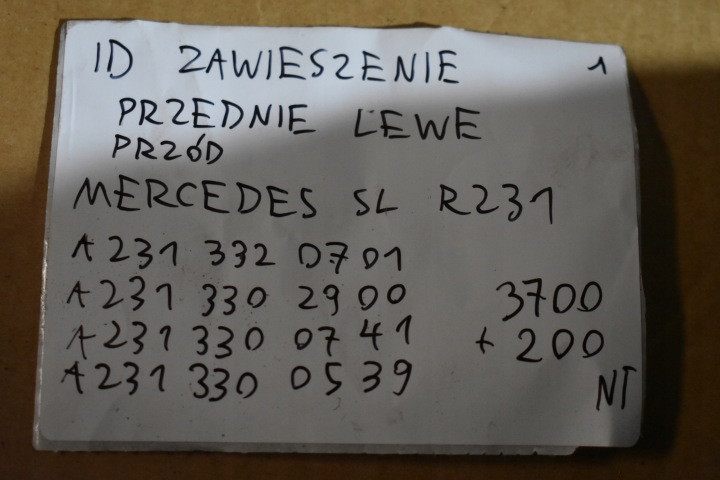 ID ZAWIESZENIE 1
PRZEDNIE LEWE
PRZÓD
MERCEDES SL R231
A 231 332 0701
A 231 330 2900 3700
A 231 330 0741 + 200
A 231 330 0539 NT